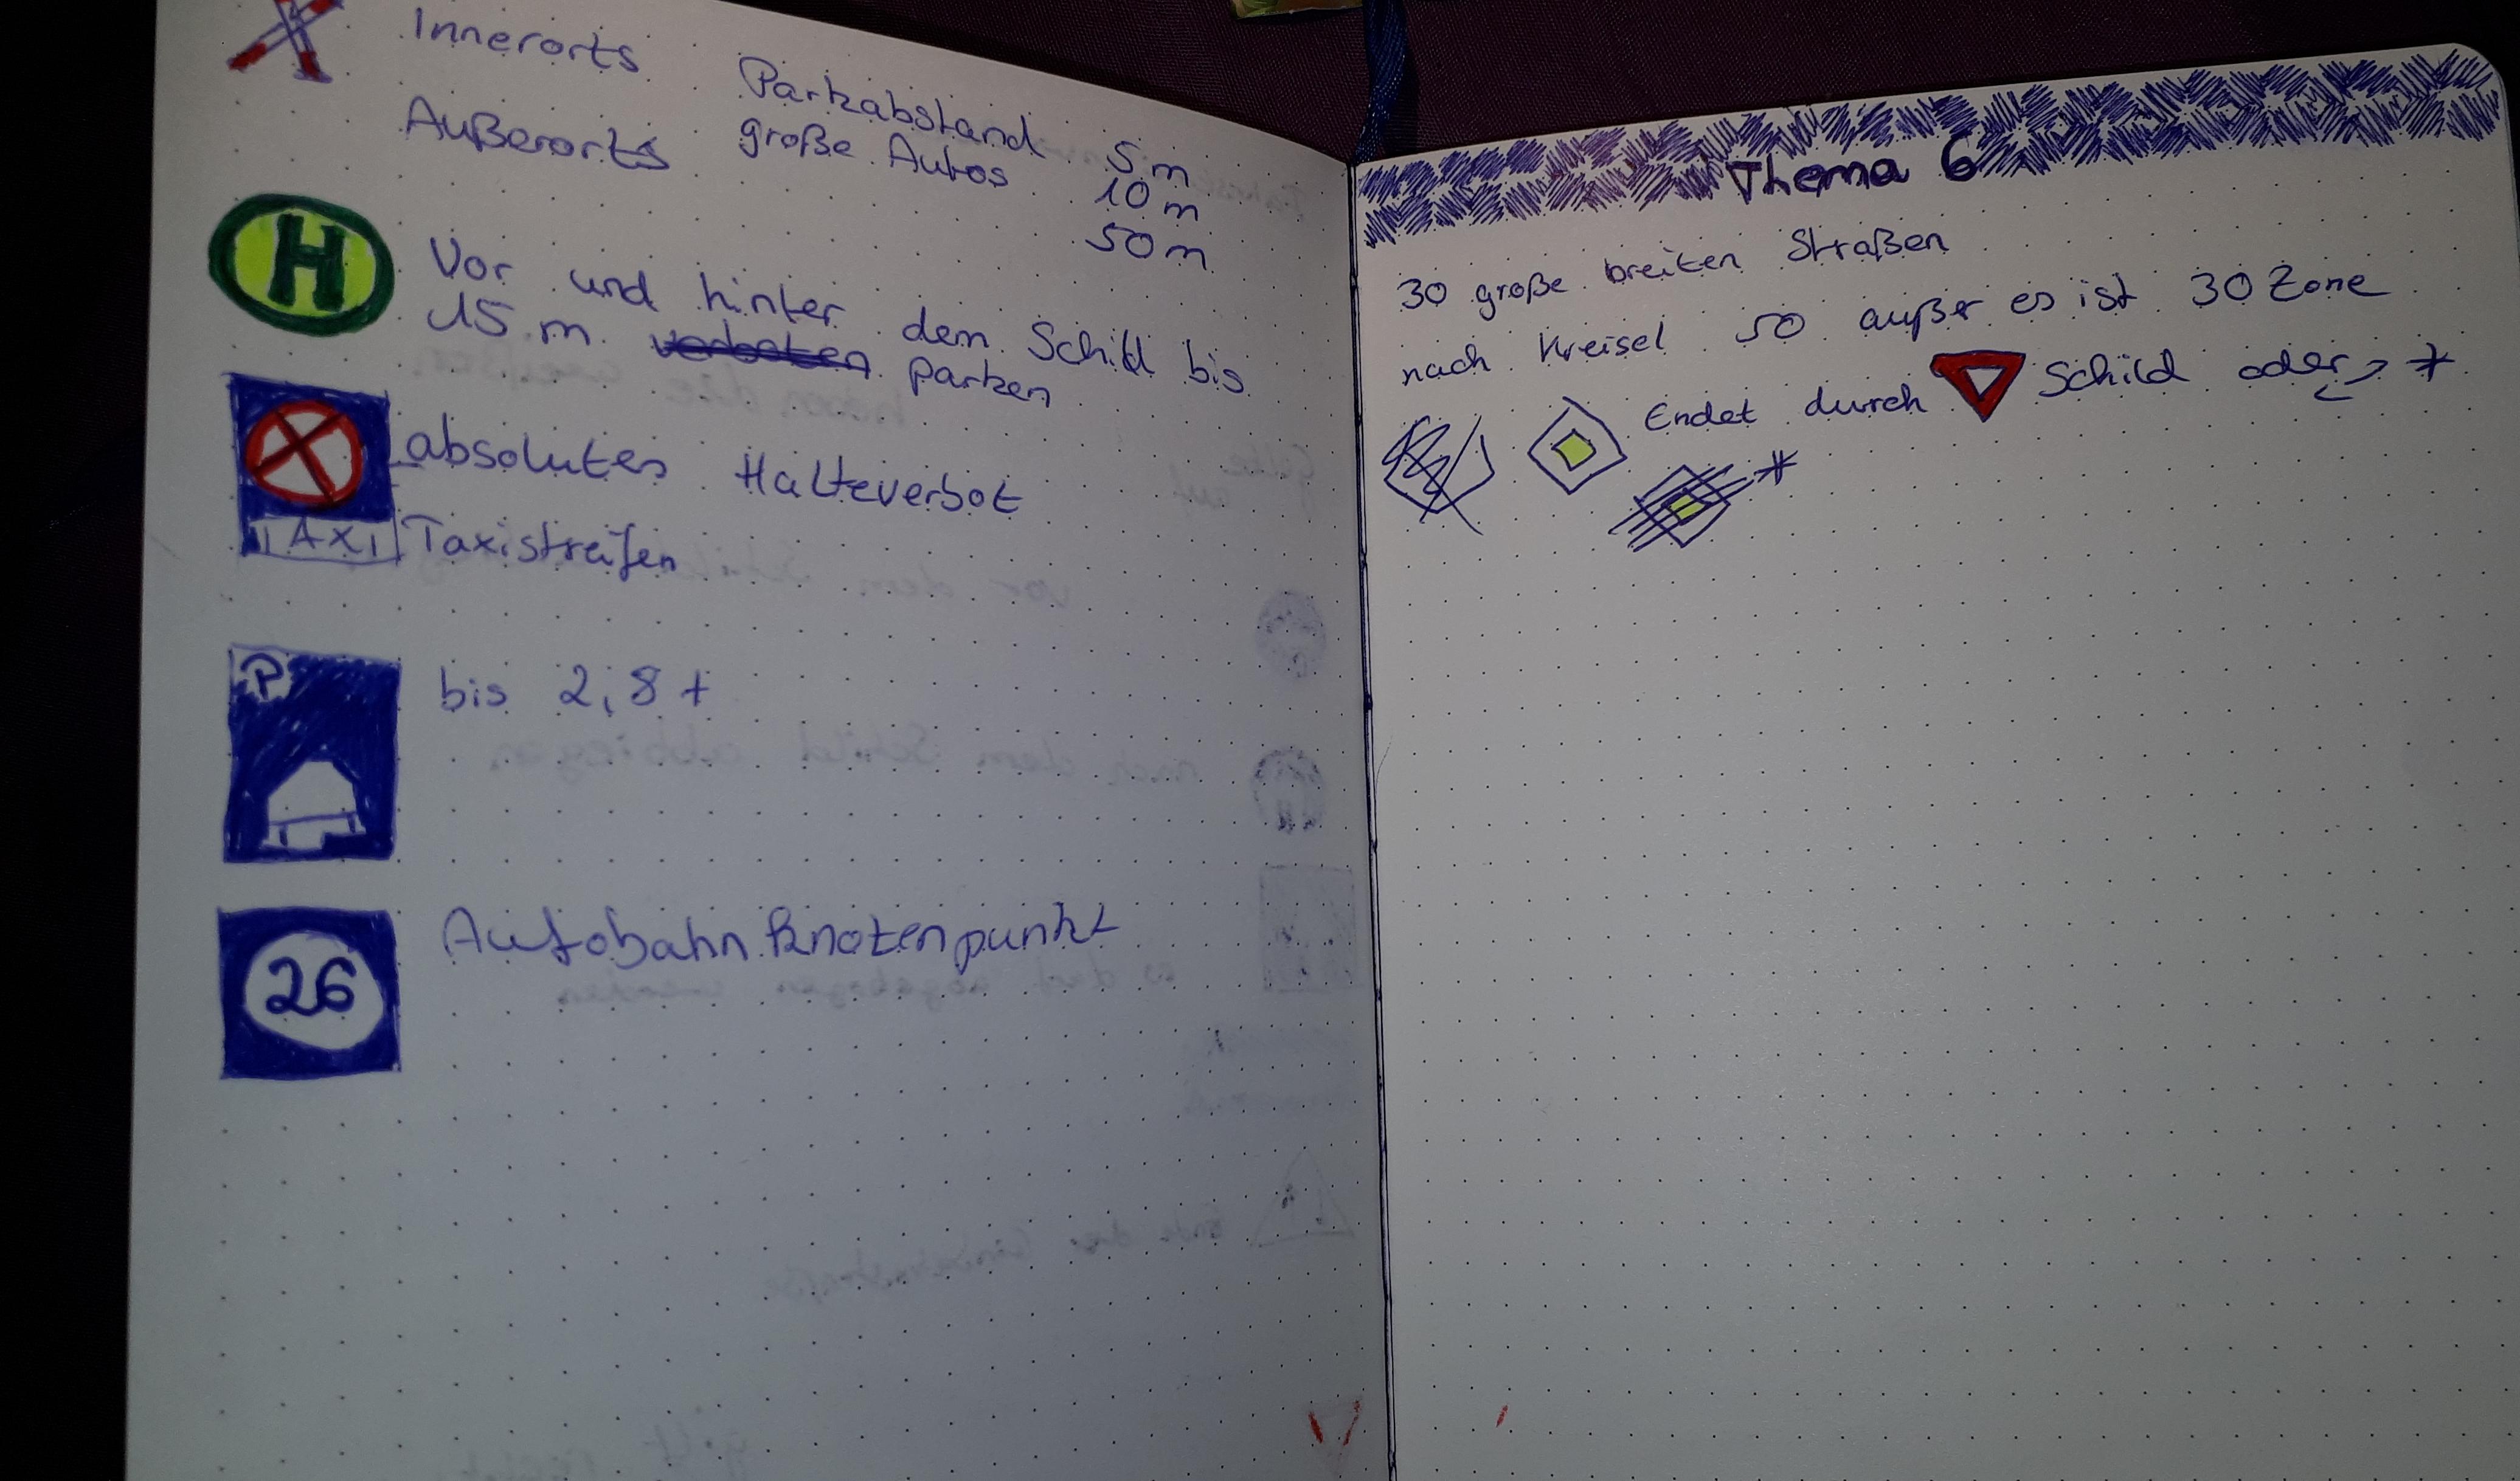 Innerorts Parkabstand 5 m
große Autos 10 m
Außerorts 50 m
H
Vor und hinter dem Schild bis
15 m verboten parken
absolutes Halteverbot
TAXI Taxistreifen
P
bis 2,8 t
26 Autobahnknotenpunkt
Thema 6
30 große breiten Straßen
nach Kreisel 50 außer es ist 30 Zone
Endet durch Schild oder *
*